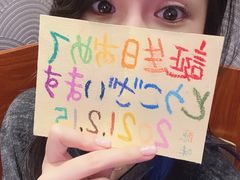 誕生日おめで
とうございます
2021.2.15